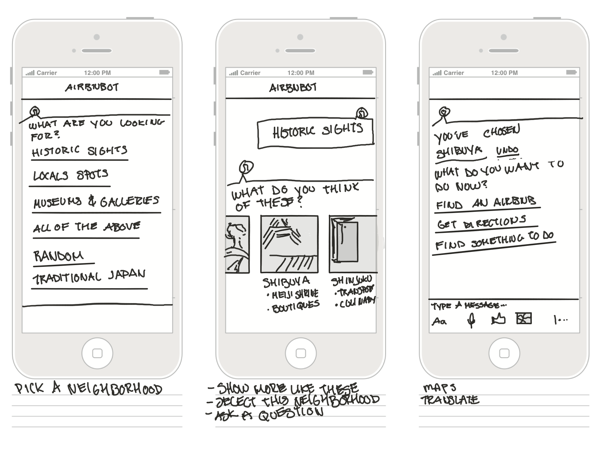 Carrier 12:00 PM
AIRBNBOT
WHAT ARE YOU LOOKING
FOR?
HISTORIC SIGHTS
LOCALS SPOTS
MUSEUMS & GALLERIES
ALL OF THE ABOVE
RANDOM
TRADITIONAL JAPAN
PICK A NEIGHBORHOOD
Carrier 12:00 PM
AIRBNBOT
HISTORIC SIGHTS
WHAT DO YOU THINK
OF THESE?
SHIBUYA
• MEIJI SHRINE
• BOUTIQUES
SHINJUKU
• TRANSPOR
• CULINARY
- SHOW MORE LIKE THESE
- SELECT THIS NEIGHBORHOOD
- ASK A QUESTION
Carrier 12:00 PM
YOU'VE CHOSEN
SHIBUYA UNDO
WHAT DO YOU WANT TO
DO NOW?
FIND AN AIRBNB
GET DIRECTIONS
FIND SOMETHING TO DO
TYPE A MESSAGE...
Aa
MAPS
TRANSLATE